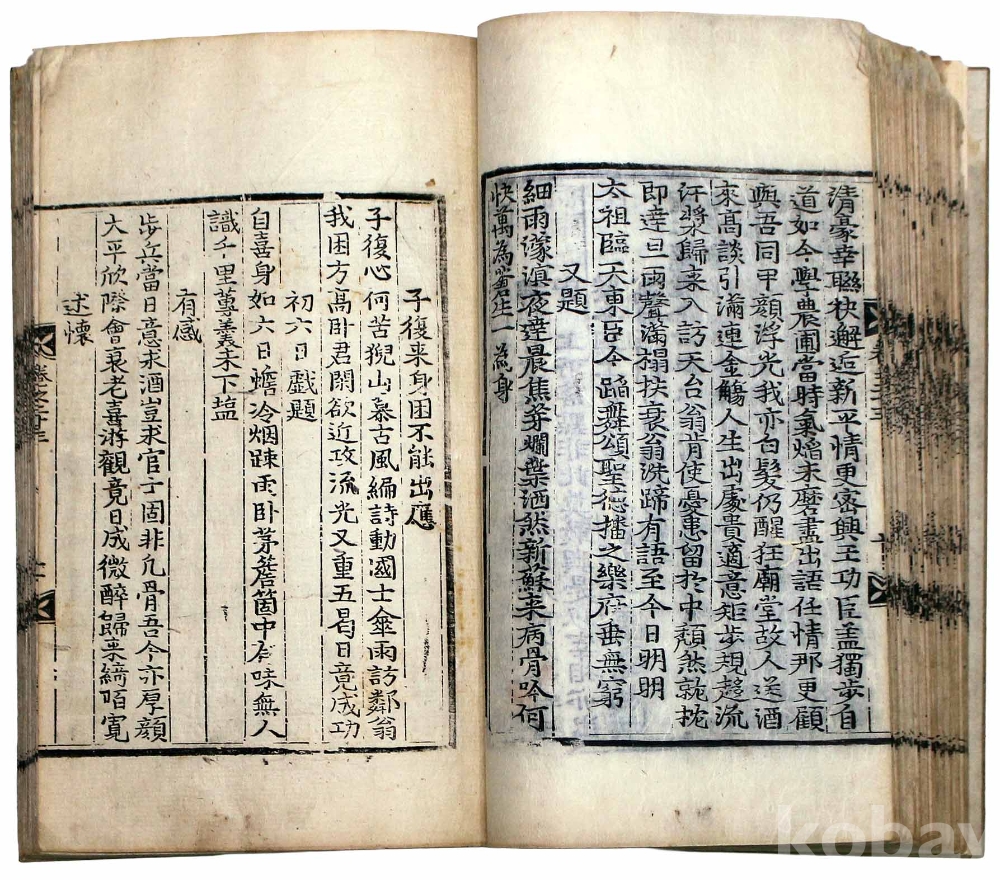 清豪幸聯袂邂逅新平情更密興王功臣盖獨步自
道如今學農圃當時氣焰未磨盡出語任情那更顧
與吾同甲顔浮光我亦白髮仍醒狂廟堂故人送酒
來高談引滿連金觴人生出處貴適意矩步規趨流
汗漿歸来入訪天台翁肯使憂患留於中頹然就枕
即達旦雨聲滿榻扶衰翁洗蹄有語至今日明明
太祖臨大東臣今蹈舞頌聖德播之樂府垂無窮
又題
細雨濛濛夜達晨焦芽爛葉洒然新蘇来病骨吟何
快萬為蒼生一為身
子復来身困不能出應
子復心何苦猊山慕古風編詩動國士傘雨訪鄰翁
我困方高卧君閑欲近攻流光又重五曷日竟成功
初六日戲題
自喜身如六日蟾冷烟踈雨卧茅簷箇中有味無人
識千里蓴羹未下塩
有感
步兵當日意求酒豈求官于固非凡骨吾今亦厚顔
大平欣際會衰老喜游觀竟日成微醉歸来綺陌寛
述懷
卷之三十三
kobay